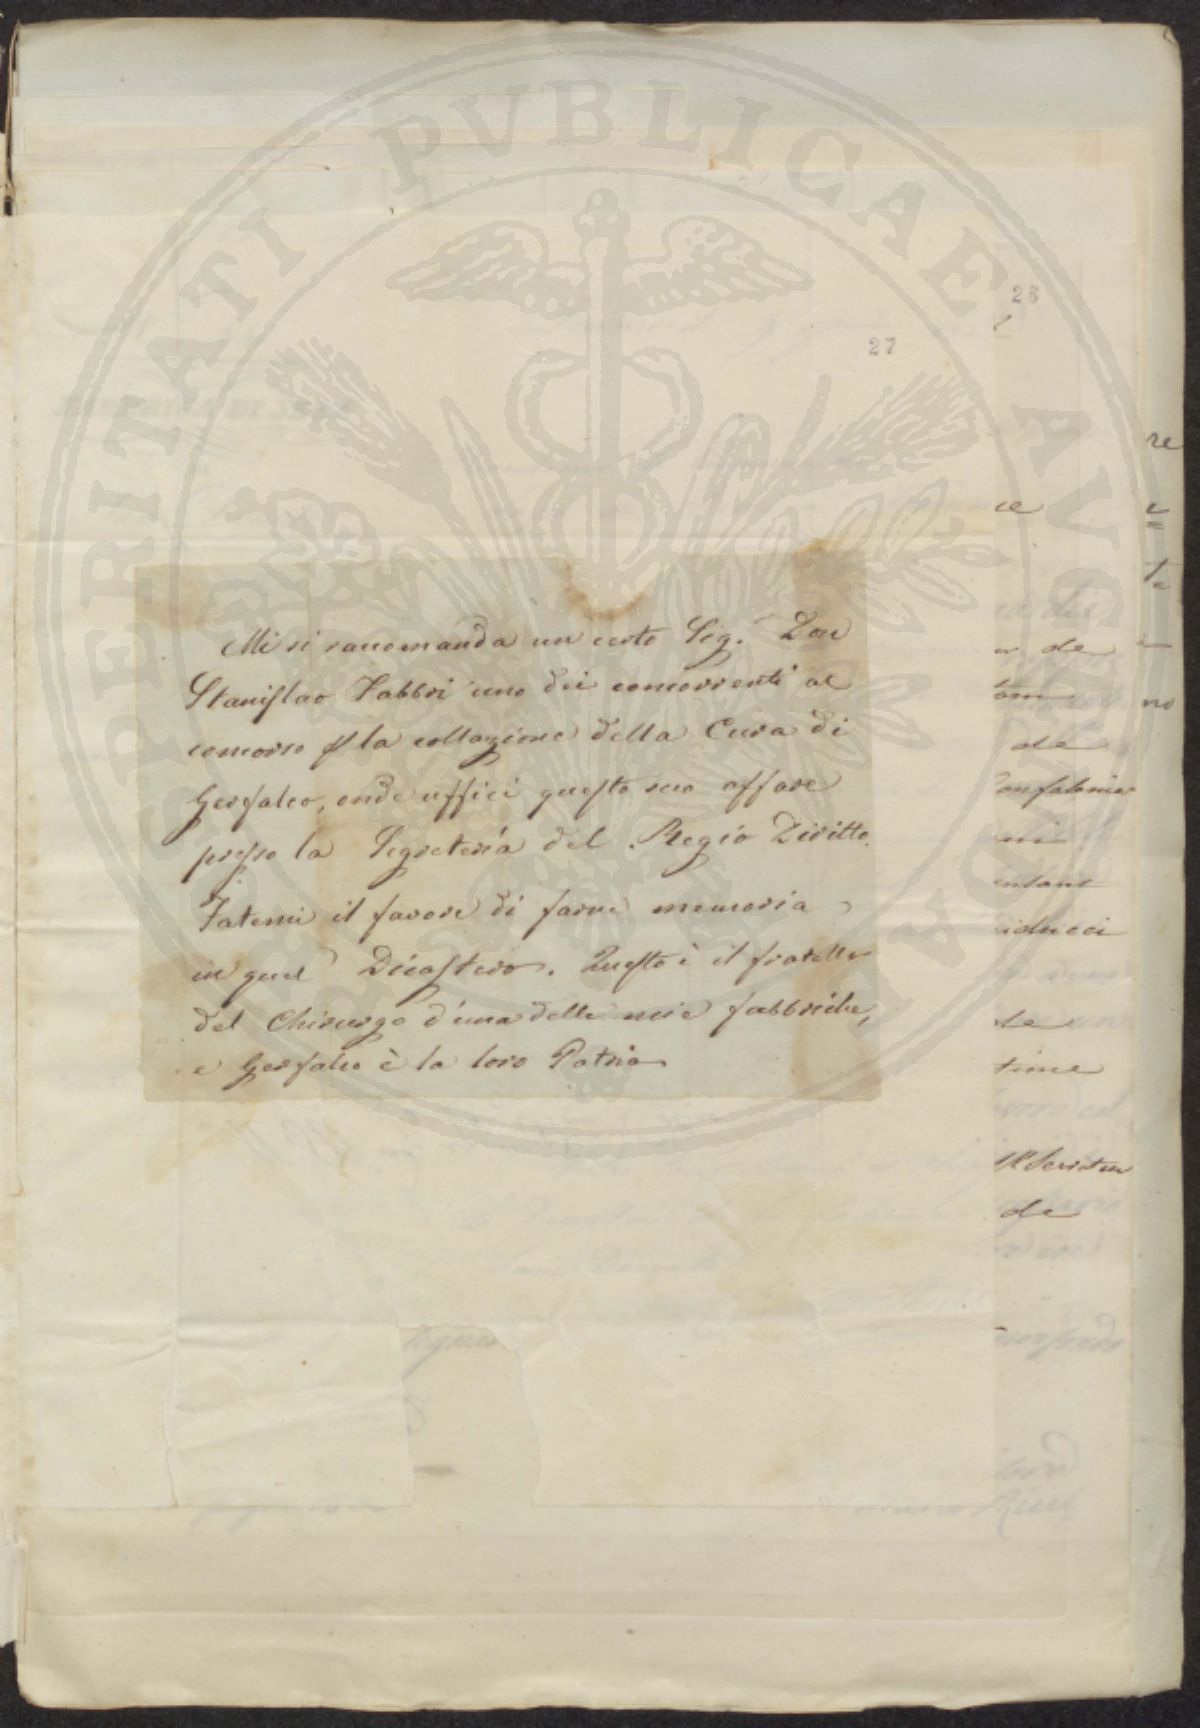 PROSPERITATI PVBLICAE AVGENDAE
28
27
Mi si raccomanda un certo Sig.r Don
Stanislao Fabbri uno dei concorrenti al
concorso p la collazione della Cura di
Gerfalco, onde uffici questo suo affare
presso la Segreteria del Regio Diritto.
Fatemi il favore di farne memoria
in quel Dicastero. Questo è il fratello
del Chirurgo d'una delle mie fabbriche,
e Gerfalco è la loro Patria
re
ce
de
de
ni
le
time
de
no